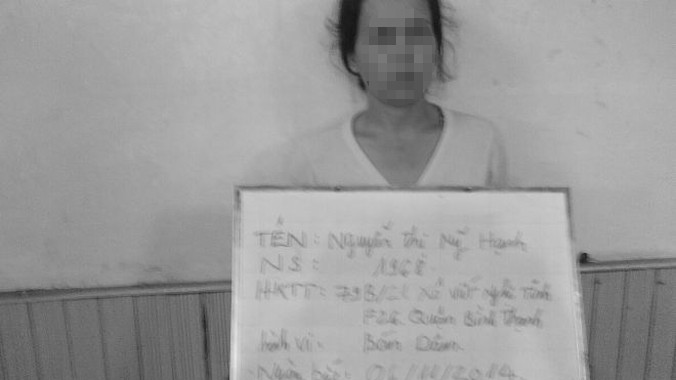 TÊN: Nguyễn thị Mỹ Hạnh
NS: 196
HKTT: Xô viết nghệ Tĩnh
Quận Bình Thạnh
hành vi: Bán Dâm
Ngày bắt: /11/2014